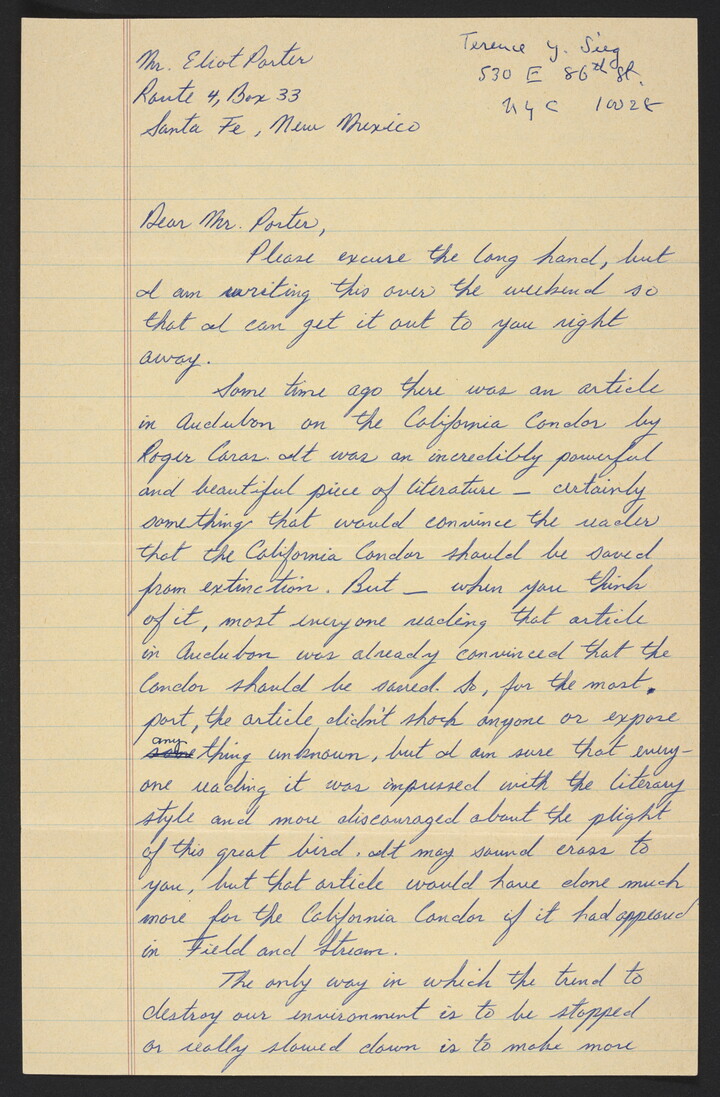 Mr. Eliot Porter
Route 4, Box 33
Santa Fe, New Mexico
Terence Y. Sieg
530 E 86th St.
NYC 10028
Dear Mr. Porter,
Please excuse the long hand, but
I am writing this over the weekend so
that I can get it out to you right
away.
Some time ago there was an article
in Audubon on the California Condor by
Roger Caras. It was an incredibly powerful
and beautiful piece of literature — certainly
something that would convince the reader
that the California Condor should be saved
from extinction. But — when you think
of it, most everyone reading that article
in Audubon was already convinced that the
Condor should be saved. So, for the most
part, the article didn't shock anyone or expose
anything unknown, but I am sure that every-
one reading it was impressed with the literary
style and more discouraged about the plight
of this great bird. It may sound crass to
you, but that article would have done much
more for the California Condor if it had appeared
in Field and Stream.
The only way in which the trend to
destroy our environment is to be stopped
or really slowed down is to make more